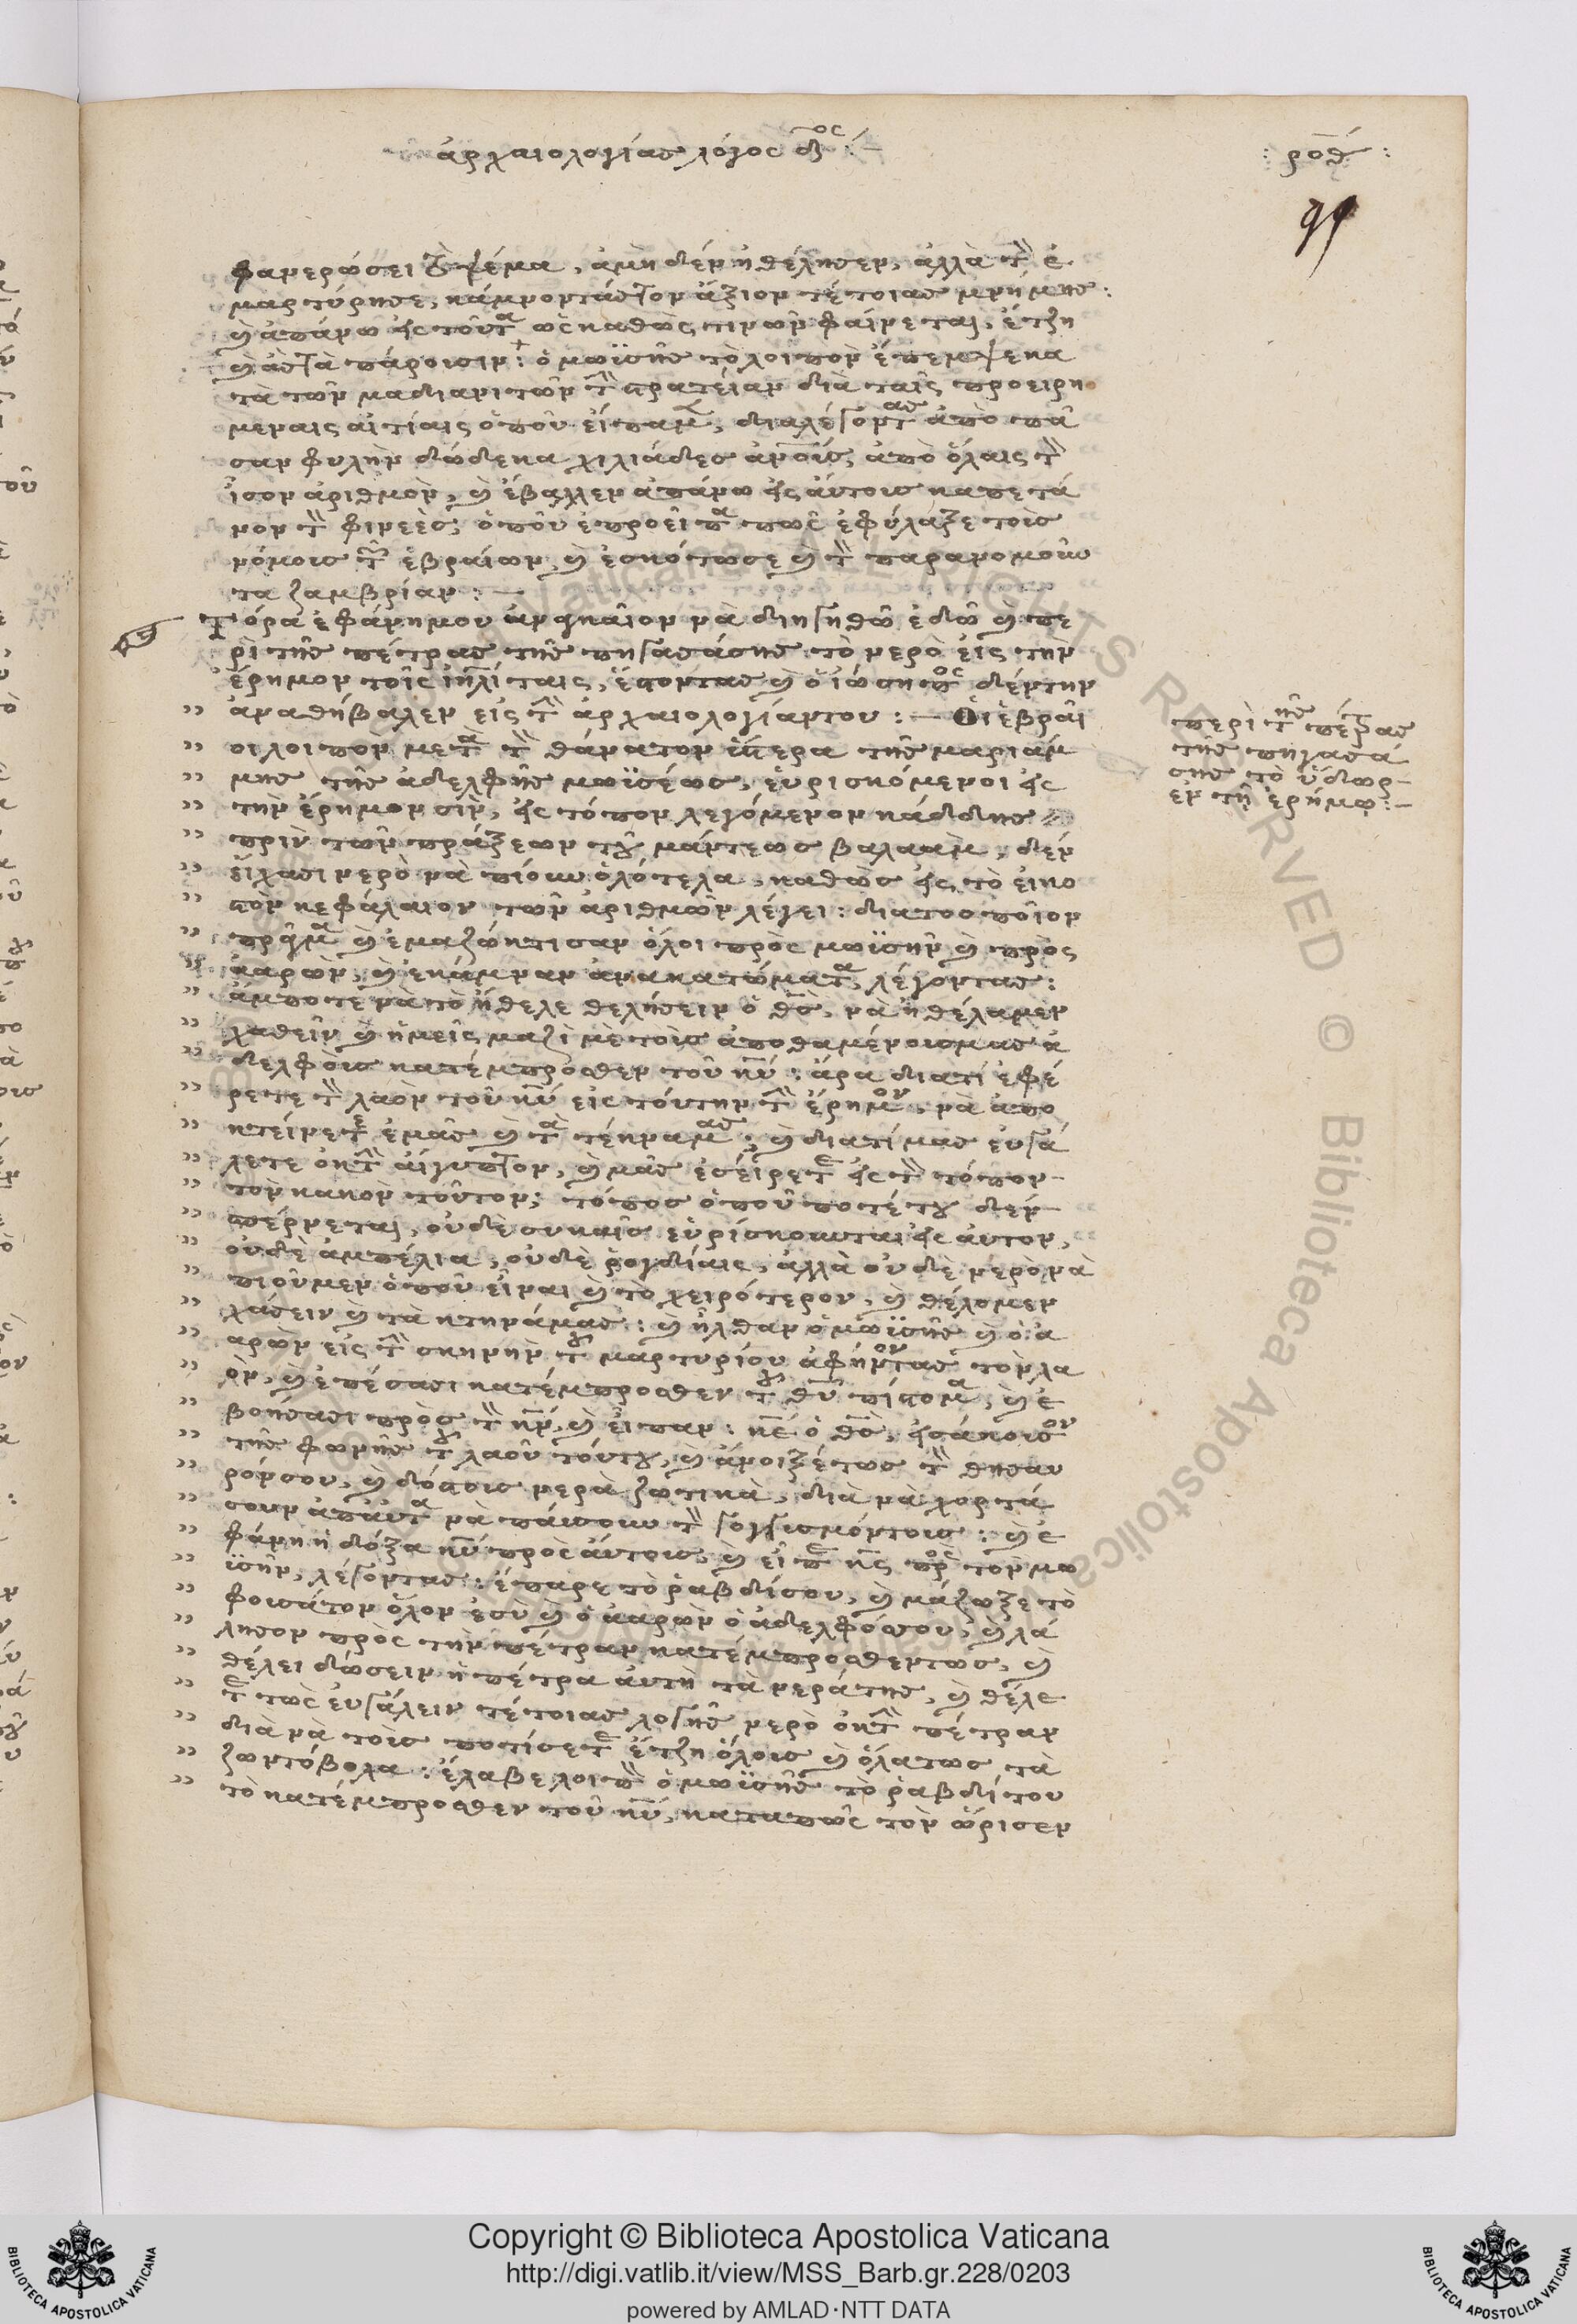 ἀρχαιολογίας λόγος δος :—
: ροθ :
91
φανερώσει τὸ ψέμα, ἀμὴ δὲν ἠθέλησεν, ἀλλὰ τὸν ἐ
μαρτύρησε, κάμνοντάς τον ἄξιον τέτοιας μνήμης:
καὶ ἀπάνω εἰς τοῦτα ὡς καθὼς τινῶν φαίνεται, ἔτζη
καὶ ἂς τὰ πάροισιν: ὁ μωϋσῆς τὸ λοιπὸν ἔπεμψε κα
τὰ τῶν μαδιανιτῶν τὴν στρατείαν διὰ ταῖς προειρη
μέναις αἰτίαις ὁποῦ εἴπαμεν, διαλέγοντας ἀπὸ πᾶ
σαν φυλὴν δώδεκα χιλιάδες ἀνοὺς, ἀπὸ ὅλαις τὸν
ἴσον ἀριθμὸν, καὶ ἔβαλλεν ἀπάνω εἰς αὐτους καπετά
νον τὸν φινεὲς, ὁποῦ ἐπροεῖπα πῶς ἐφύλαξε τοὺς
νόμους τῶν ἑβραίων, καὶ ἐσκότωσε καὶ τὸν παρανομοῦν
τα ζαμβρίαν :—
Τόρα ἐφάνη μου ἀναγκαῖον νὰ διηγηθῶ ἐδῶ καὶ πε
ρὶ τῆς πέτρας τῆς πηγασάσης τὸ νερὸ εἰς τὴν
ἔρημον τοῖς ἰηλίταις, ἔστοντας καὶ ὁ ἰώσηπος δὲν τὴν
" ἀναθήβαλεν εἰς τὴν ἀρχαιολογίαν του :— Οἱ ἑβραῖ
" οι λοιπὸν μετὰ τὸν θάνατον ὕστερα τῆς μαριάμ
" μης τῆς ἀδελφῆς μωϋσέως, εὑρισκόμενοι εἰς
" τὴν ἔρημον σὶν, εἰς τόπον λεγόμενον κάδδης
" πρὶν τῶν πράξεων τοῦ μάντεως βαλαὰμ, δὲν
" εἴχασι νερὸ νὰ πίουν ὁλότελα, καθὼς εἰς τὸ εἰκο
" στὸν κεφάλαιον τῶν ἀριθμῶν λέγει: διὰ τοσποῖον
" πρᾶγμα καὶ ἐμαζώκτισαν ὅλοι πρὸς μωϋσὴν καὶ πρὸς
" ἀαρὼν, καὶ ἐκάμναν ἀνακατώματα, λέγοντας:
" ἄμποτε νὰ τὸ ἤθελε θελήσειν ὁ θς, νὰ ἠθέλαμεν
" χαθεῖν καὶ ἡμεῖς μαζὶ μὲ τοὺς ἀποθαμένους μας ἀ
" δελφοὺς κατέμπροσθεν τοῦ κυ: ἄρα διατί ἐφέ
" ρετε τὸν λαὸν τοῦ κυ εἰς τούτην τὴν ἔρημον, νὰ ἀπο
" κτείνετε ἐμᾶς καὶ τὰ τέκνα μας; καὶ διατί μας εὐγά
" λετε ἐκ τὴν αἴγυπτον, καὶ μᾶς ἐφέρετε εἰς τὸν τόπον
" τὸν κακὸν τοῦτον; τόπος ὁποῦ ποτέ του δὲν
" σπέρνεται, οὐδὲ συκαῖς εὑρίσκουνται εἰς αὐτον,
" οὐδὲ ἀμπέλια, οὐδὲ ῥογδίαις, ἀλλὰ οὐδὲ νερὸ νὰ
" πιοῦμεν ὁποῦ εἶναι καὶ τὸ χειρότερον, καὶ θέλομεν
" χάσειν καὶ τὰ κτηνά μας: καὶ ἦλθαν ὁ μωϋσῆς καὶ ὁ ἀ
" αρὼν εἰς τὴν σκηνὴν τοῦ μαρτυρίου ἀφήνοντας τὸν λα
" ὸν, καὶ ἐπέσασι κατέμπροσθεν τοῦ θυ πίστομα, καὶ ἐ
" βοήσασι πρὸς τὸν κν, καὶ εἶπαν: κε ὁ θς, εἰσάκουσον
" τῆς φωνῆς τοῦ λαοῦ τούτου, καὶ ἄνοιξέ τως τὸν θησαυ
" ρόν σου, καὶ δός τους νερὰ ζωτικὰ, διὰ νὰ χορτά
" σουν ἀπ' αὐτὰ νὰ πάυσουν τὸν γογγισμόν τους: καὶ ἐ
" φάνη ἡ δόξα κυ πρὸς αὐτους, καὶ εἶπε κς πρὸς τὸν μω
" ϋσὴν, λέγοντας: ἔπαρε τὸ ῥαβδίσου, καὶ μάζωξε τὸ
" φουσάτον ὅλον ἐσὺ καὶ ὁ ἀαρὼν ὁ ἀδελφόσου, καὶ λά
" λησον πρὸς τὴν πέτραν κατέμπροσθεντως, καὶ
" θέλει δώσειν ἡ πέτρα αὐτὴ τὰ νερά της, καὶ θέλε
" τε τῶς εὐγάλειν τέτοιας λογῆς νερὸ ἐκ τὴν πέτραν
" διὰ νὰ τοὺς ποτίσετε ἔτζη ὅλους καὶ ὅλα τως τὰ
" ζωντόβολα: ἔλαβε λοιπὸν ὁ μωϋσῆς τὸ ῥαβδί του
" τὸ κατέμπροσθεν τοῦ κυ, καταπῶς τὸν ὥρισεν
περὶ τῆς πέτρας
τῆς πηγασά
σης τὸ ὕδωρ
ἐν τῇ ἐρήμῳ :—
Copyright © Biblioteca Apostolica Vaticana
http://digi.vatlib.it/view/MSS_Barb.gr.228/0203
powered by AMLAD·NTT DATA
BIBLIOTECA APOSTOLICA VATICANA
BIBLIOTECA APOSTOLICA VATICANA